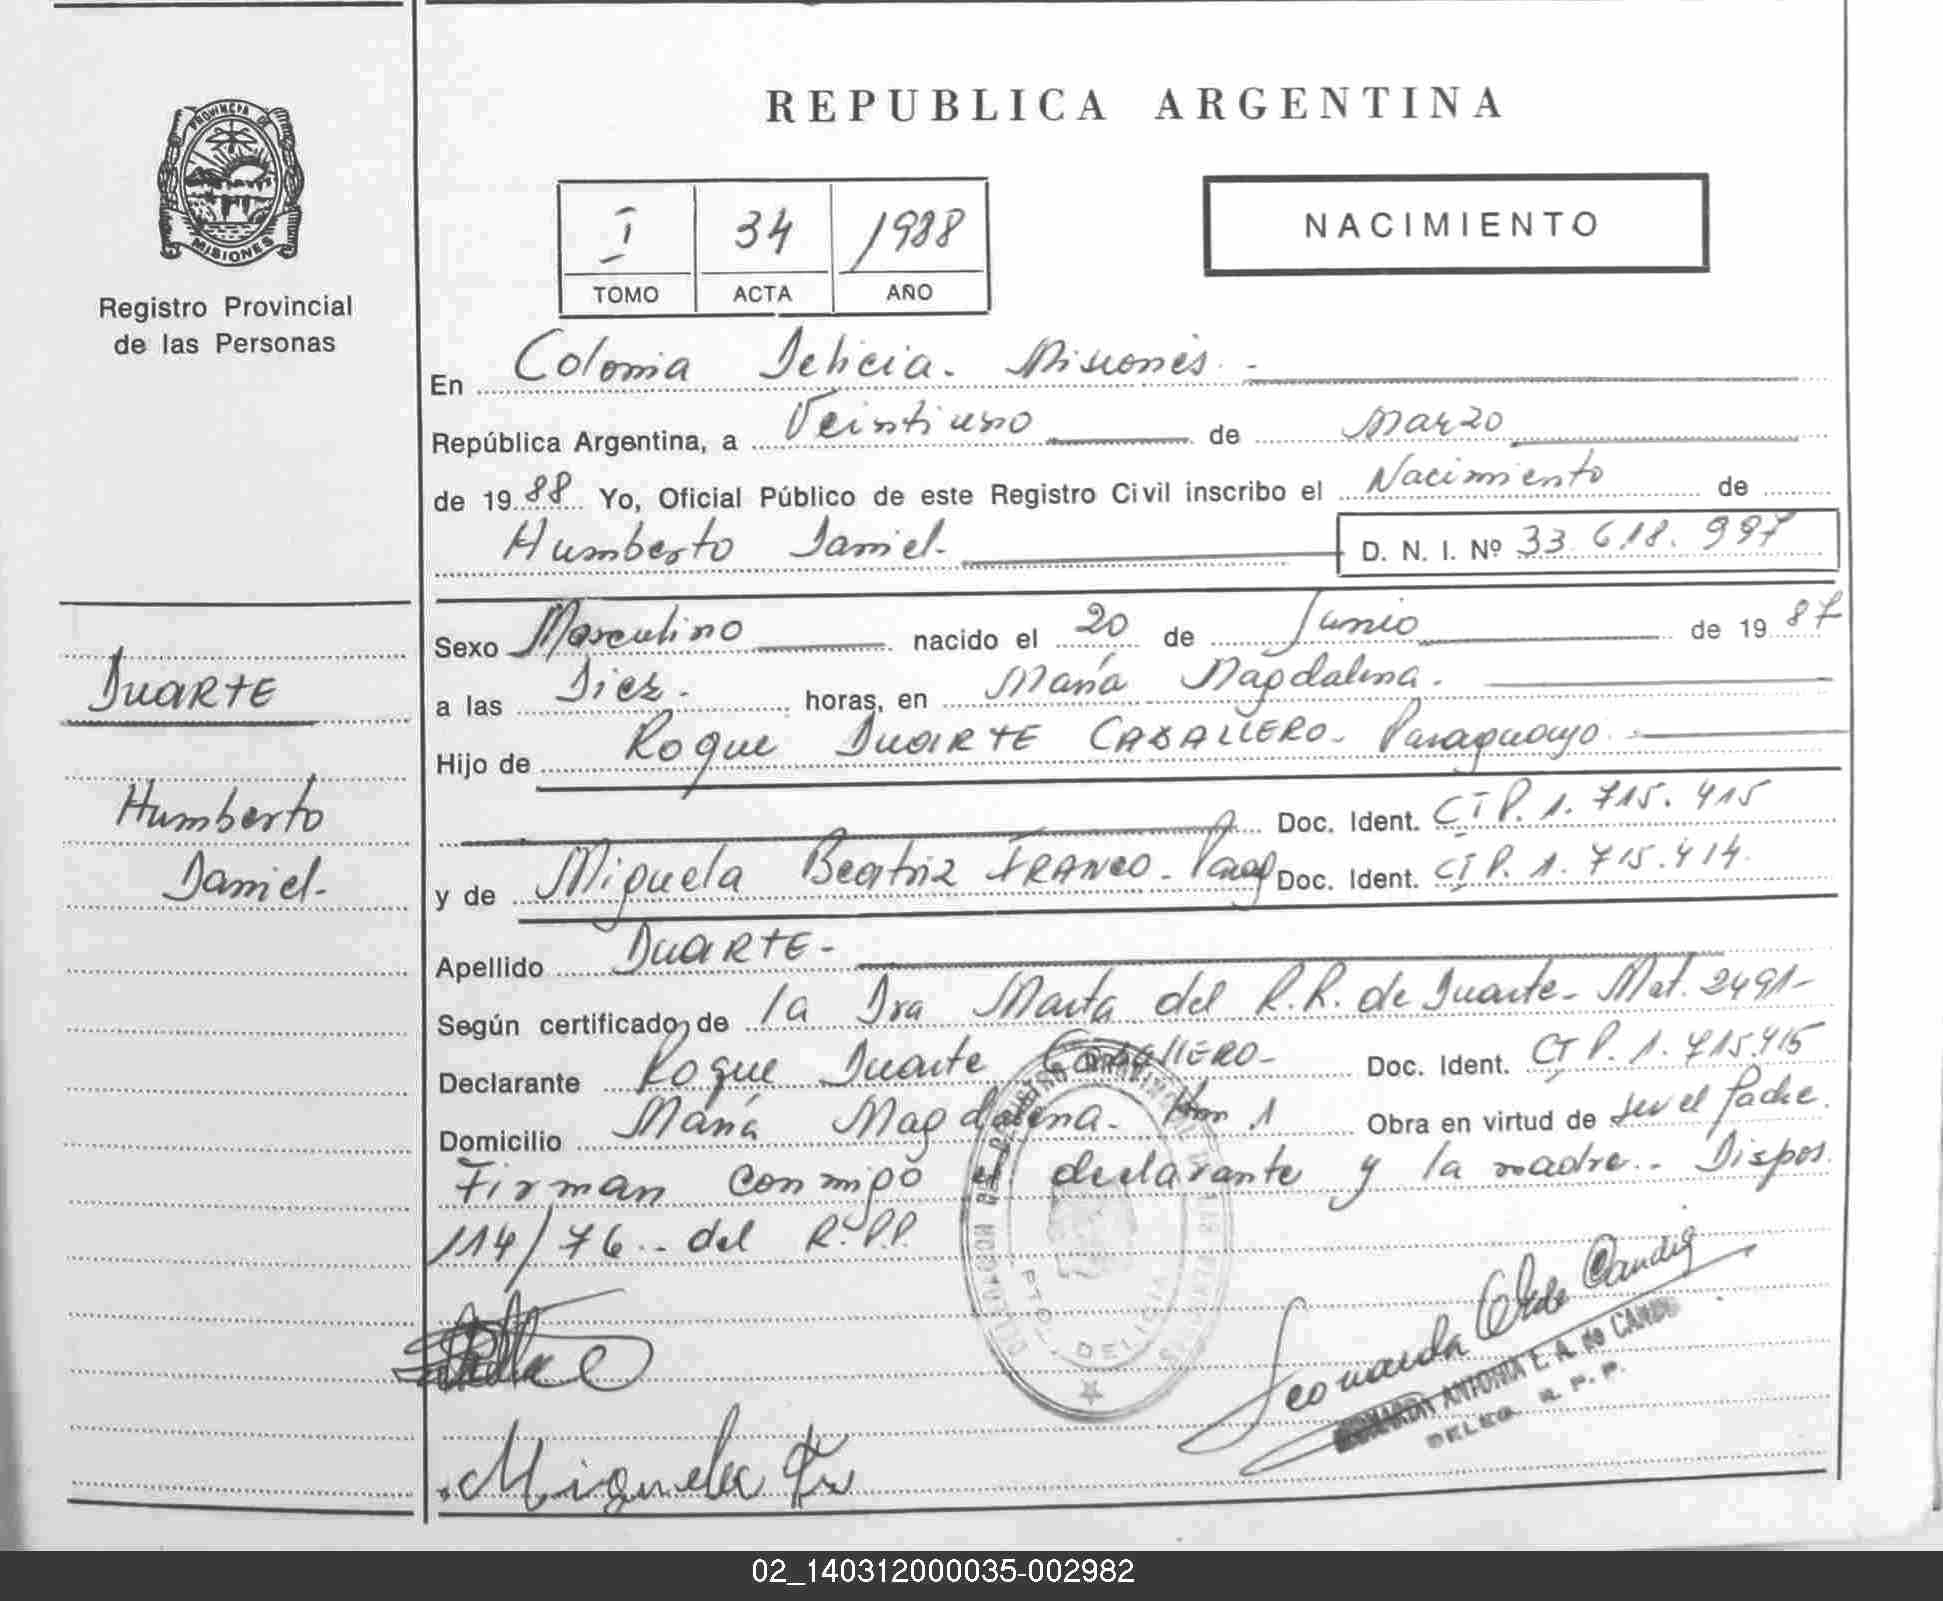 REPUBLICA ARGENTINA
PROVINCIA DE
MISIONES
Registro Provincial
de las Personas
I 34 1988
TOMO ACTA AÑO
NACIMIENTO
En Colonia Delicia. Misiones. -
República Argentina, a Veintiuno de Marzo
de 1988 Yo, Oficial Público de este Registro Civil inscribo el Nacimiento de
Humberto Daniel. D. N. I. Nº 33.618.997
Sexo Masculino nacido el 20 de Junio de 1987
a las Diez. horas, en María Magdalena.
Hijo de Roque DUARTE CABALLERO. Paraguayo.
Doc. Ident. CIP. 1.715.415
y de Miguela Beatriz FRANCO - Parag Doc. Ident. CIP. 1.715.414.
Apellido DUARTE -
Según certificado de la Dra Marta del R.R. de Duarte - Mat. 2491-
Declarante Roque Duarte CABALLERO- Doc. Ident. CIP. 1.715.415
Domicilio María Magdalena. Km 1 Obra en virtud de ser el Padre.
Firman conmigo el declarante y la madre.. Dispos.
114/76.. del R.P.P.
DUARTE
Humberto
Daniel-
PTO. DELICIA
Miguela Fr
Leonarda de Candia
ANTONIA L. A. de CANDIA
R. P. P.
02_140312000035-002982